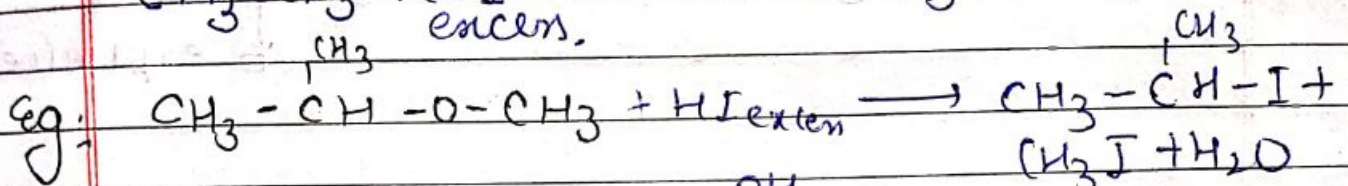 excess.
CH3 CH3
Eg: CH3 - CH - O - CH3 + HI excess ⟶ CH3 - CH - I +
CH3I + H2O